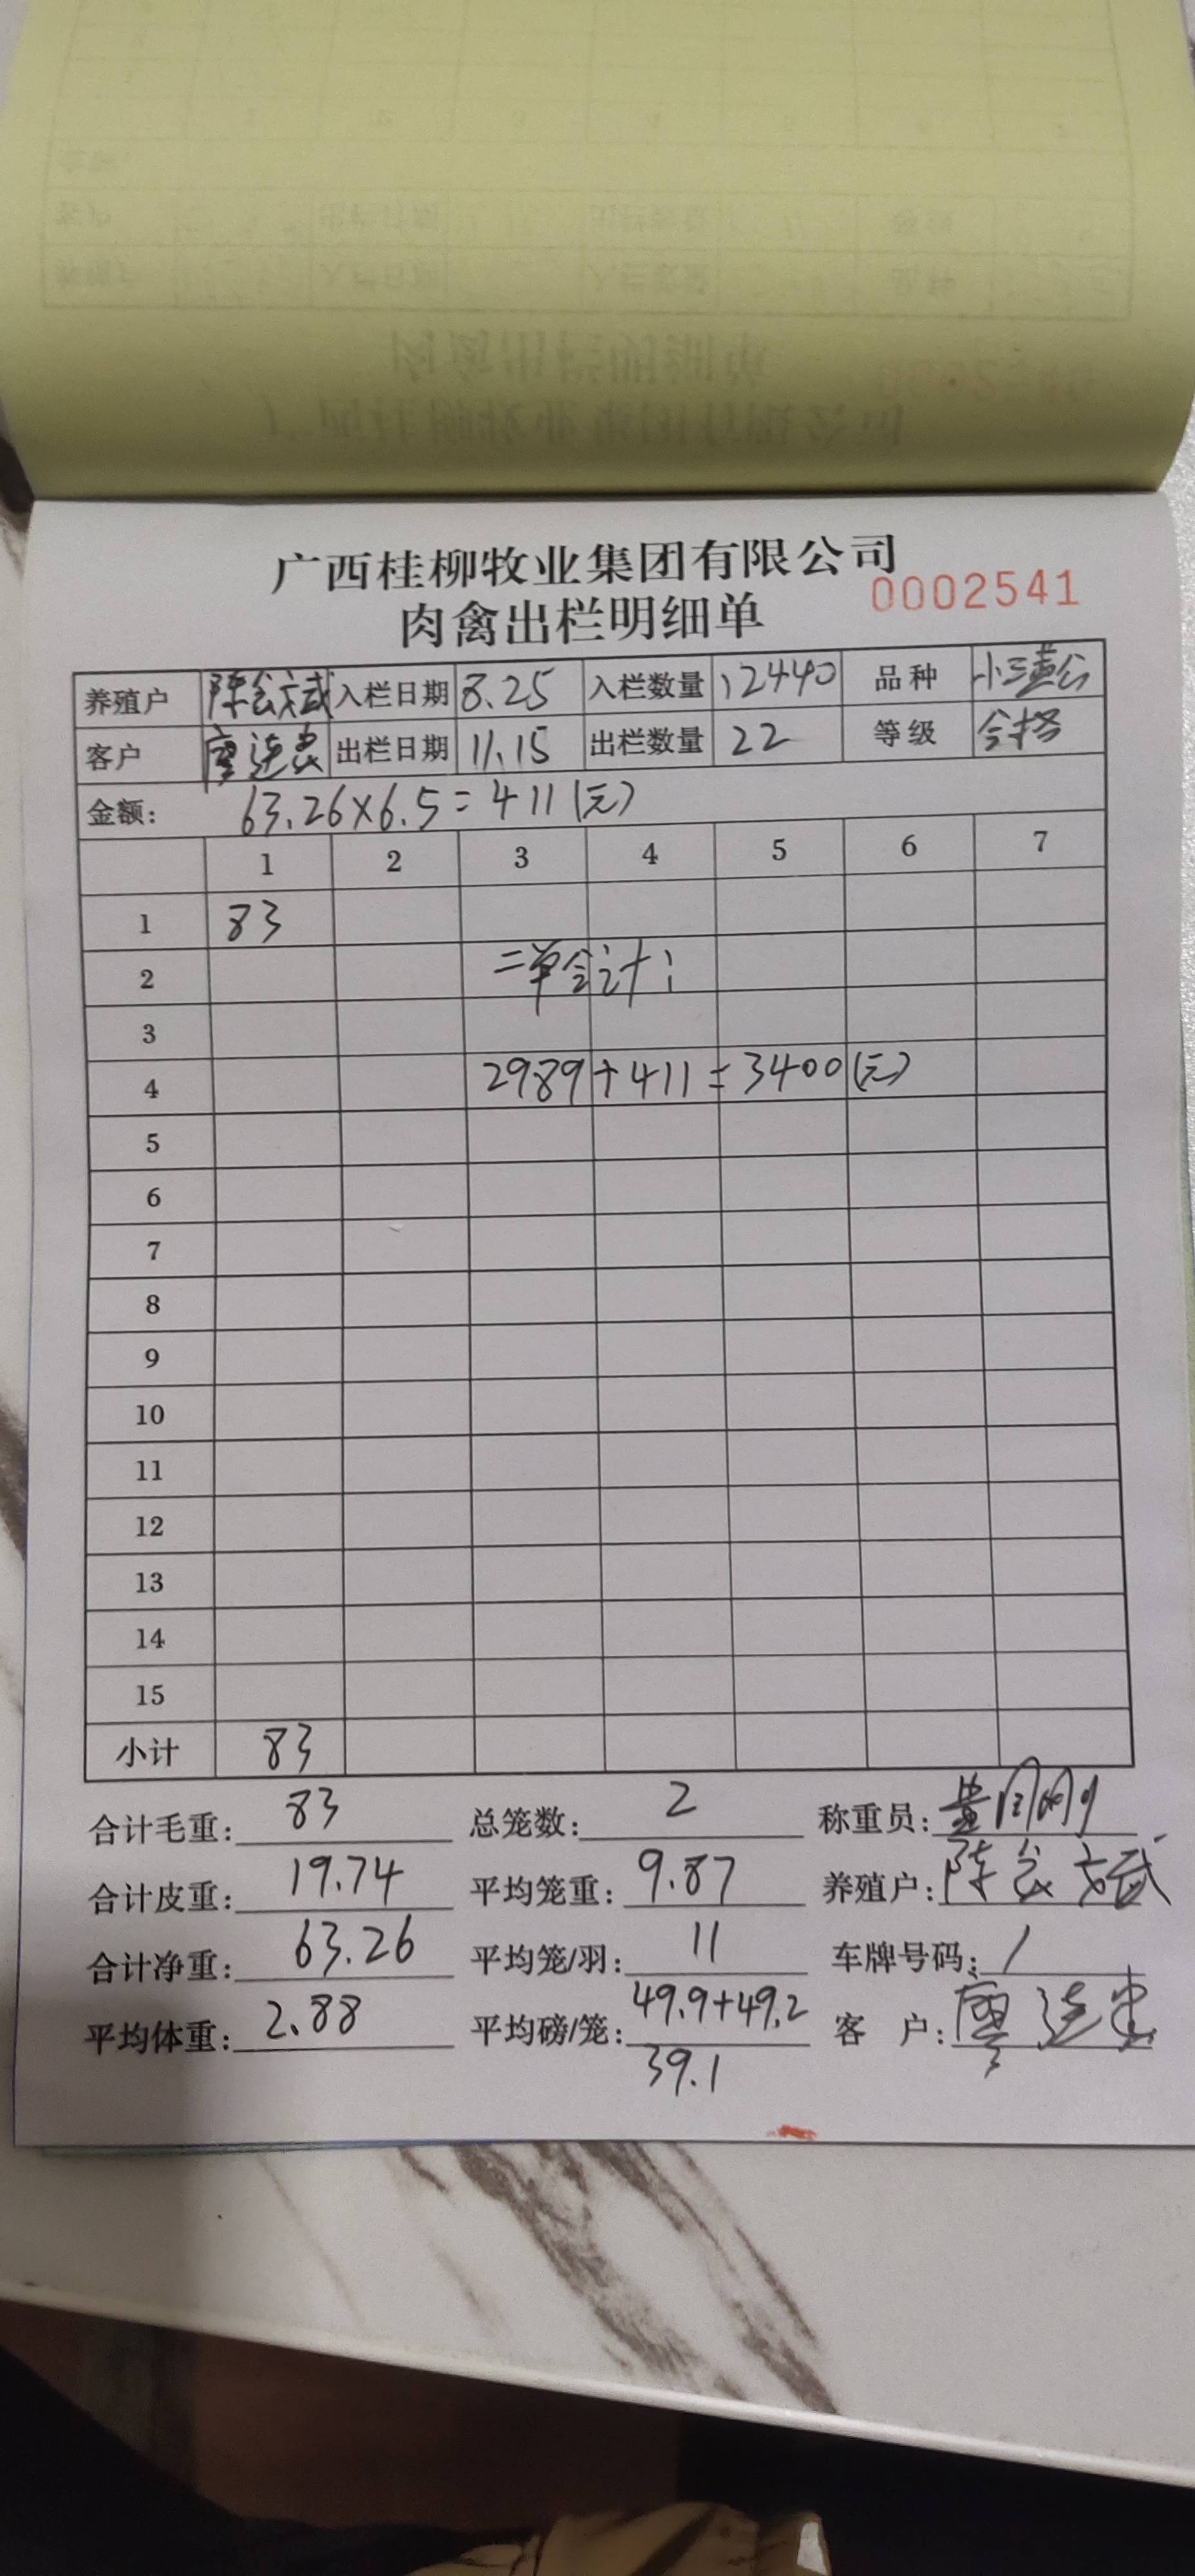 广西桂柳牧业集团有限公司
肉禽出栏明细单 0002541
养殖户 陈 入栏日期 8.25 入栏数量 12440 品种
客户 廖 出栏日期 11.15 出栏数量 22 等级 合格
金额: 63.26×6.5=411(元)
1 2 3 4 5 6 7
1 83
2 二单合计:
3
4 2989+411=3400(元)
5
6
7
8
9
10
11
12
13
14
15
小计 83
合计毛重: 83 总笼数: 2 称重员:
合计皮重: 19.74 平均笼重: 9.87 养殖户: 陈
合计净重: 63.26 平均笼/羽: 11 车牌号码: /
平均体重: 2.88 平均磅/笼: 49.9+49.2 客 户: 廖
39.1